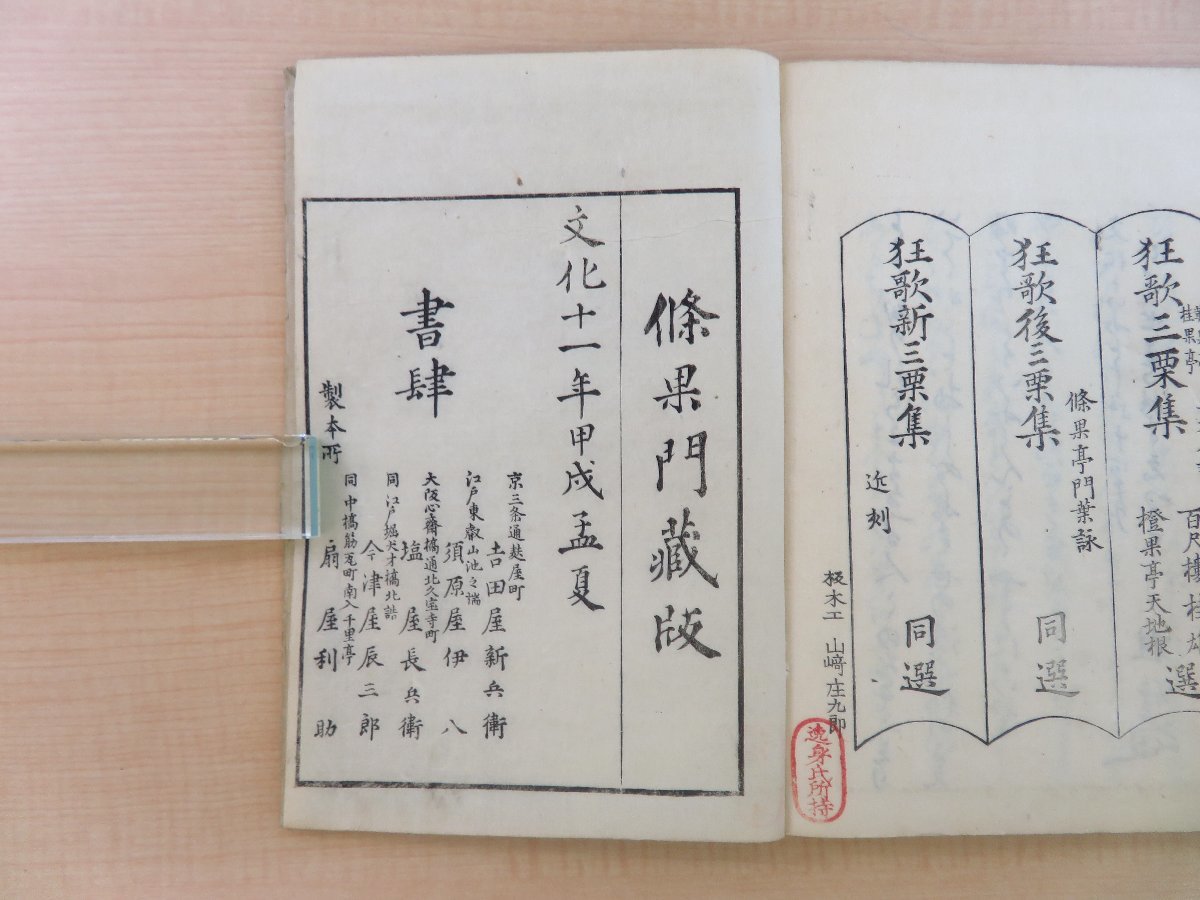 狂歌三栗集
橙果亭天地根
選
條果亭門葉詠
狂歌後三栗集
同選
狂歌新三栗集
近刻
同選
板木工 山﨑庄九郎
速身氏所持
條果門藏版
文化十一年甲戌孟夏
書肆
京三条通麸屋町
吉田屋新兵衛
江戸東叡山池之端
須原屋伊八
大阪心齋橋通北久宝寺町
塩屋長兵衛
同江戸堀犬才橋北詰
今津屋辰三郎
製本所
同中橋筋瓦町南入千里亭
扇屋利助